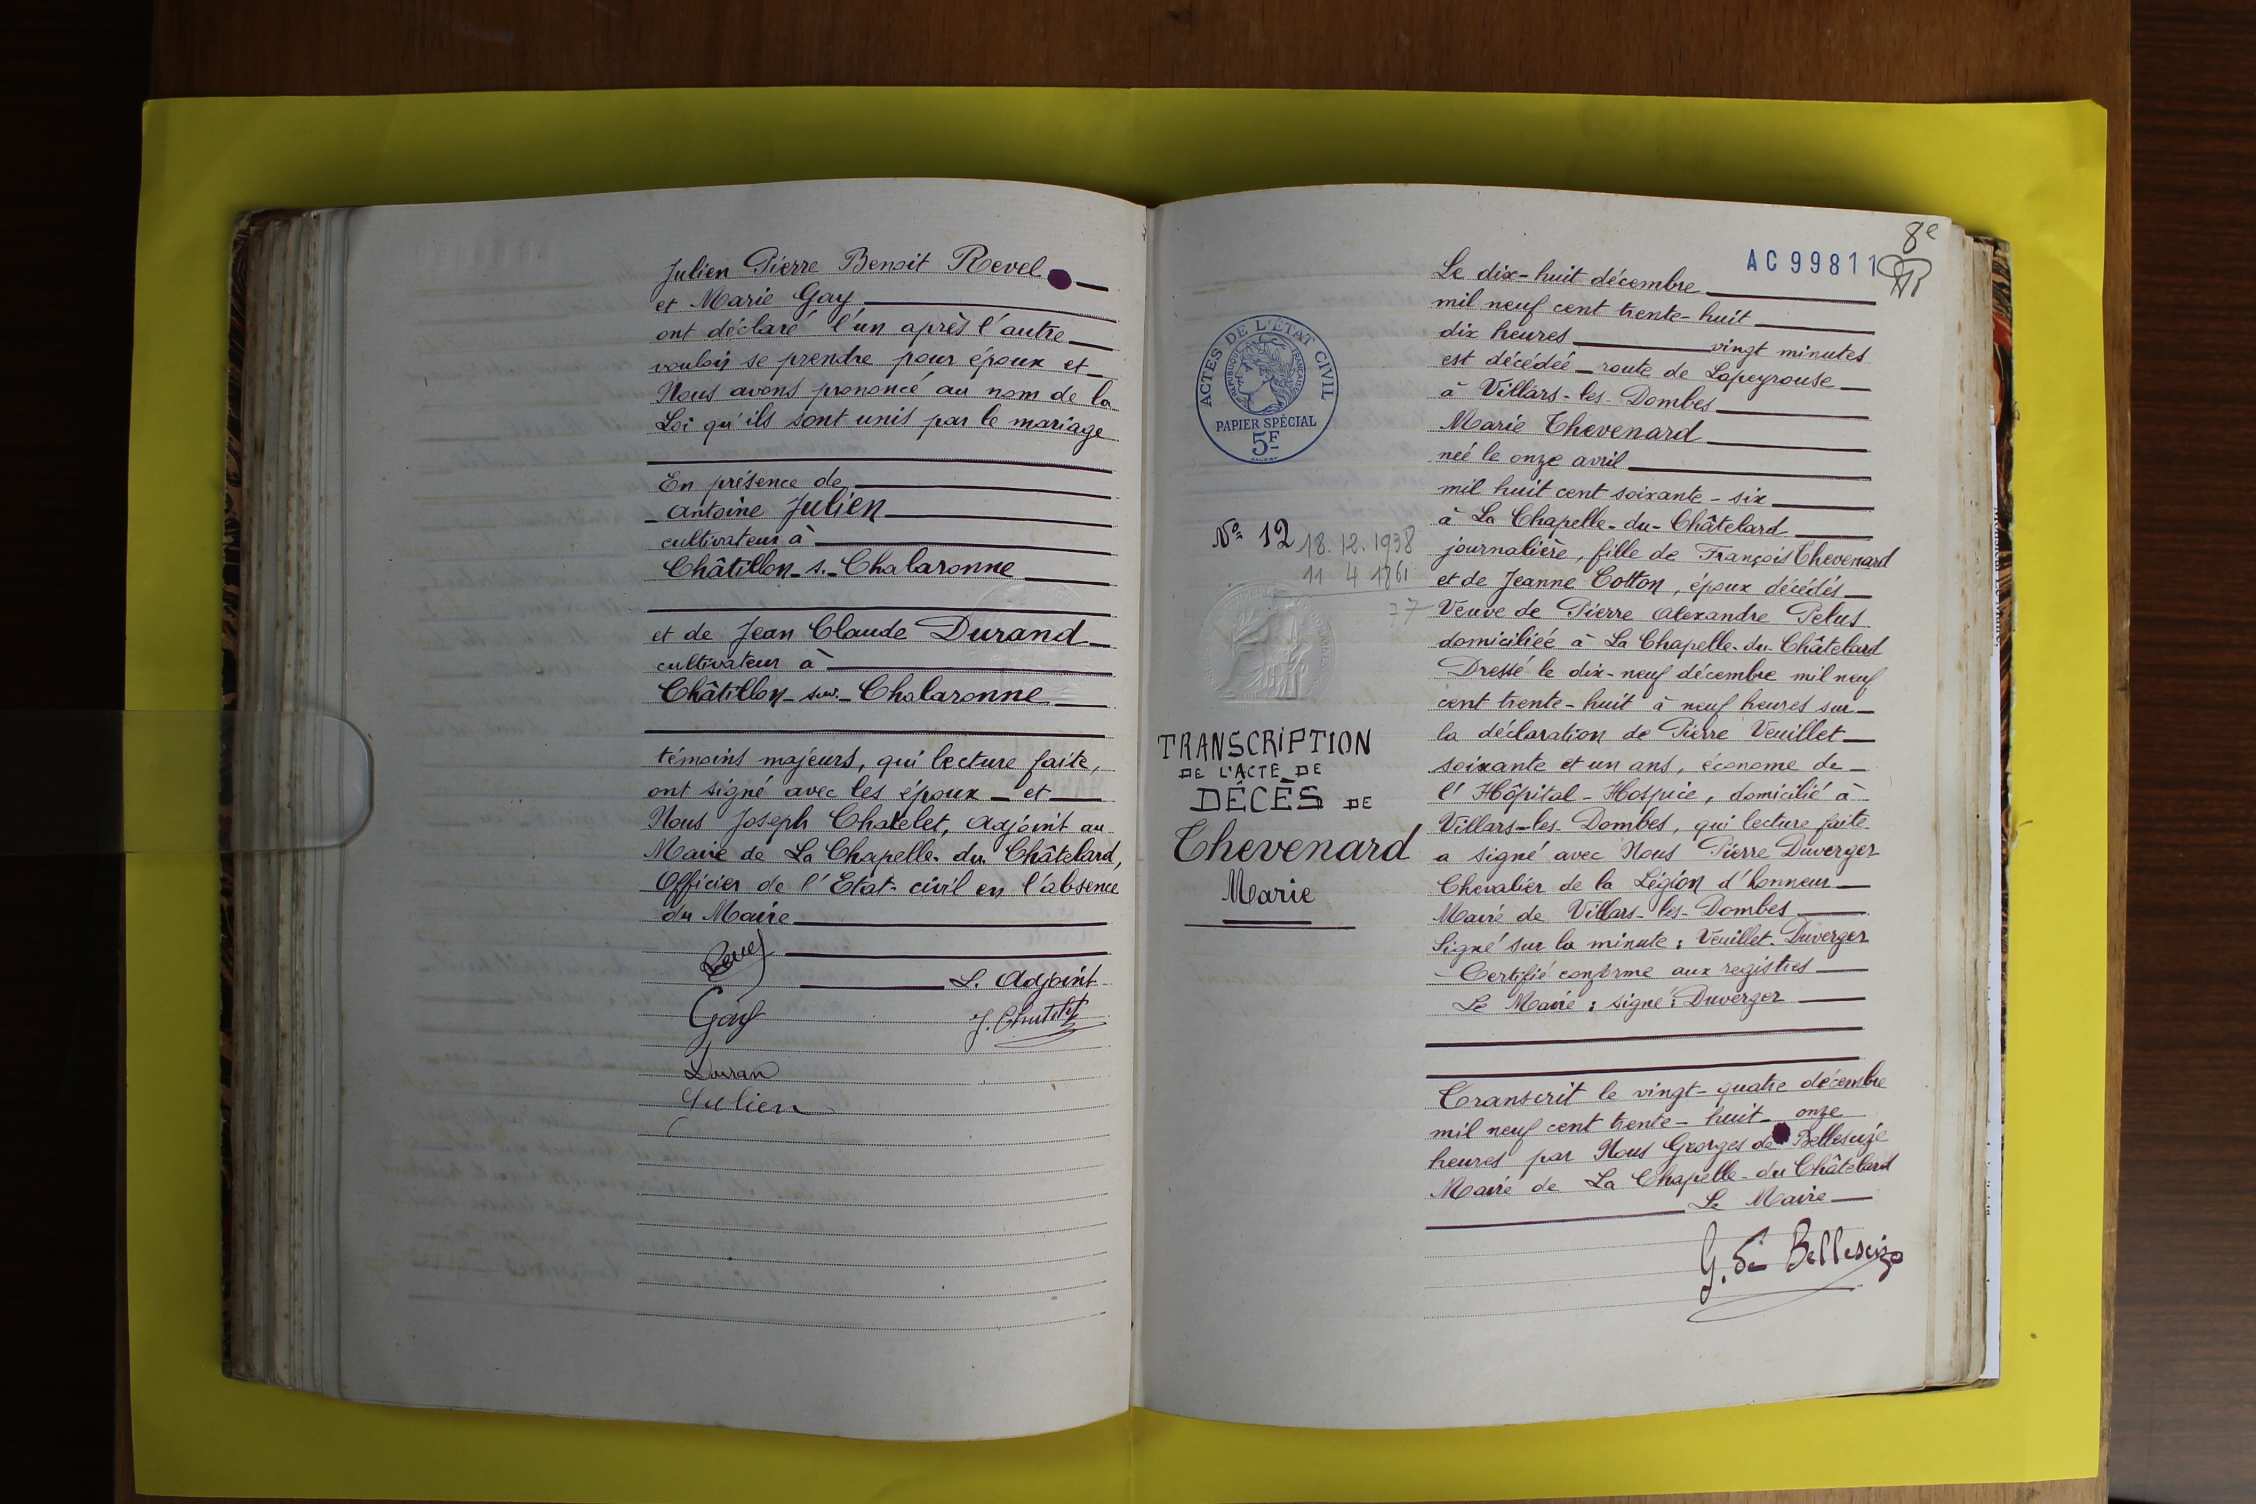 Julien Pierre Benoit Revel
et Marie Gay
ont déclaré l'un après l'autre
vouloir se prendre pour époux et
Nous avons prononcé au nom de la
Loi qu'ils sont unis par le mariage
En présence de
Antoine Julien
cultivateur à
Châtillon-s.-Chalaronne
et de Jean Claude Durand
cultivateur à
Châtillon-sur-Chalaronne
témoins majeurs, qui lecture faite,
ont signé avec les époux et
Nous Joseph Chatelet, Adjoint au
Maire de La Chapelle-du-Châtelard,
Officier de l'Etat-civil en l'absence
du Maire
Revel
L. Adjoint
Gay
J. Chatelet
Durand
Julien
8e
AC 99811
ACTES DE L'ÉTAT CIVIL
RÉPUBLIQUE FRANÇAISE
PAPIER SPÉCIAL
5F
No 12
18.12.1938
11 4 1861
77
TRANSCRIPTION
DE L'ACTE DE
DÉCÈS DE
Thevenard
Marie
Le dix-huit décembre
mil neuf cent trente-huit
dix heures vingt minutes
est décédée route de Lapeyrouse
à Villars-les-Dombes
Marie Thevenard
née le onze avril
mil huit cent soixante-six
à La Chapelle-du-Châtelard
journalière, fille de François Thevenard
et de Jeanne Cotton, époux décédés
Veuve de Pierre Alexandre Pelus
domiciliée à La Chapelle-du-Châtelard
Dressé le dix-neuf décembre mil neuf
cent trente-huit à neuf heures sur
la déclaration de Pierre Veuillet
soixante et un ans, économe de
l'Hôpital-Hospice, domicilié à
Villars-les-Dombes, qui lecture faite
a signé avec Nous Pierre Duverger
Chevalier de la Légion d'honneur
Maire de Villars-les-Dombes
Signé sur la minute : Veuillet. Duverger
Certifié conforme aux registres
Le Maire : signé : Duverger
Transcrit le vingt-quatre décembre
mil neuf cent trente-huit onze
heures par Nous Georges de Bellescize
Maire de La Chapelle-du-Châtelard
Le Maire
G. de Bellescize